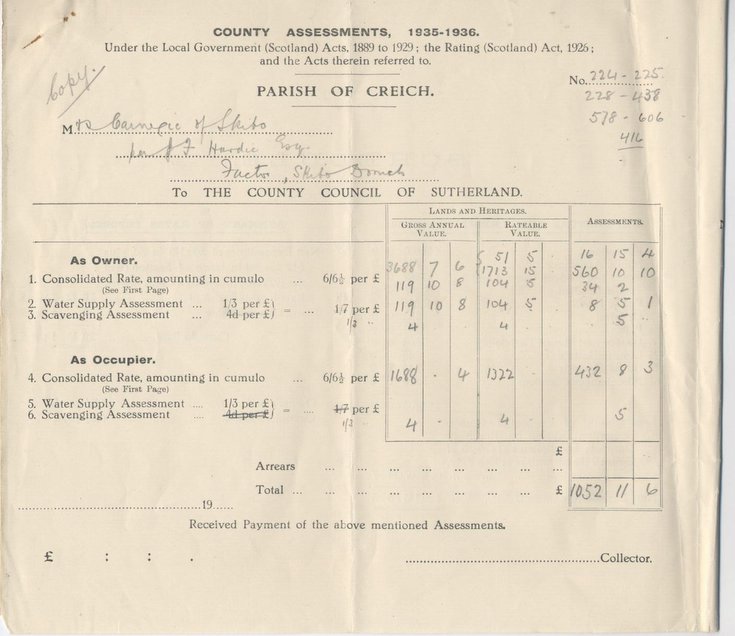 COUNTY ASSESSMENTS, 1935-1936.
Under the Local Government (Scotland) Acts, 1889 to 1929; the Rating (Scotland) Act, 1926;
and the Acts therein referred to.
Copy.
No. 224 - 225
228 - 438
578 - 606
416
PARISH OF CREICH.
Mrs Carnegie of Skibo
per J F Hardie Esq
Factor, Skibo Dornoch
To THE COUNTY COUNCIL OF SUTHERLAND.
LANDS AND HERITAGES.
GROSS ANNUAL VALUE. RATEABLE VALUE. ASSESSMENTS.
As Owner. 51 5 16 15 4
1. Consolidated Rate, amounting in cumulo ... 6/6½ per £ 3688 7 6 1713 15 560 10 10
(See First Page) 119 10 8 104 5 34 2
2. Water Supply Assessment ... 1/3 per £ = ... 1/7 per £ 119 10 8 104 5 8 5 1
3. Scavenging Assessment 4d per £ 1/3 4 4 5
As Occupier.
4. Consolidated Rate, amounting in cumulo ... 6/6½ per £ 1688 . 4 1322 432 8 3
(See First Page)
5. Water Supply Assessment .... 1/3 per £ = ... 1/7 per £
6. Scavenging Assessment .... 4d per £ 1/3 4 4 5
£
Arrears ... ... ... ... ... ... ...
Total ... ... ... ... ... ... £ 1052 11 6
19
Received Payment of the above mentioned Assessments.
£ : : . Collector.